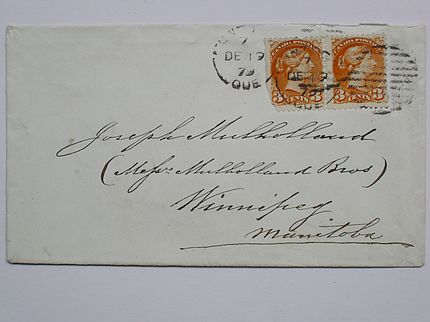 CANADA POSTAGE CANADA POSTAGE
7
DE 19
79
QUE
DE 19
79
QUE
3 CENTS 3
3 CENTS 3
Joseph Mulholland
(Messrs Mulholland Bros)
Winnipeg
Manitoba